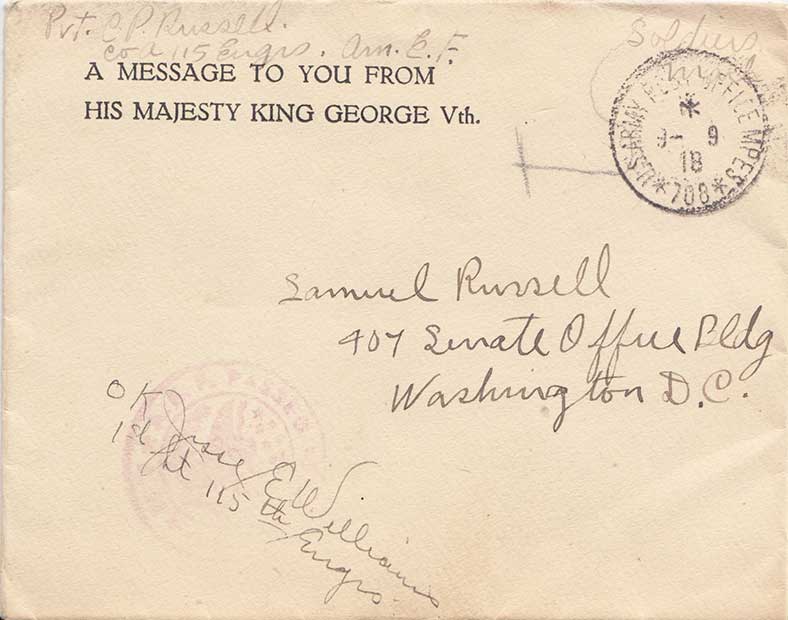 Pvt. C P. Russell.
Co. 115 Engrs. Am. E. F.
Soldiers
A MESSAGE TO YOU FROM
HIS MAJESTY KING GEORGE Vth.
U.S. ARMY POST OFFICE MPES
9- 9
18
*708*
Samuel Russell
407 Senate Office Bldg
Washington D.C.
PASSED
OK
Jesse E Williams
1st Lt 115th Engrs.